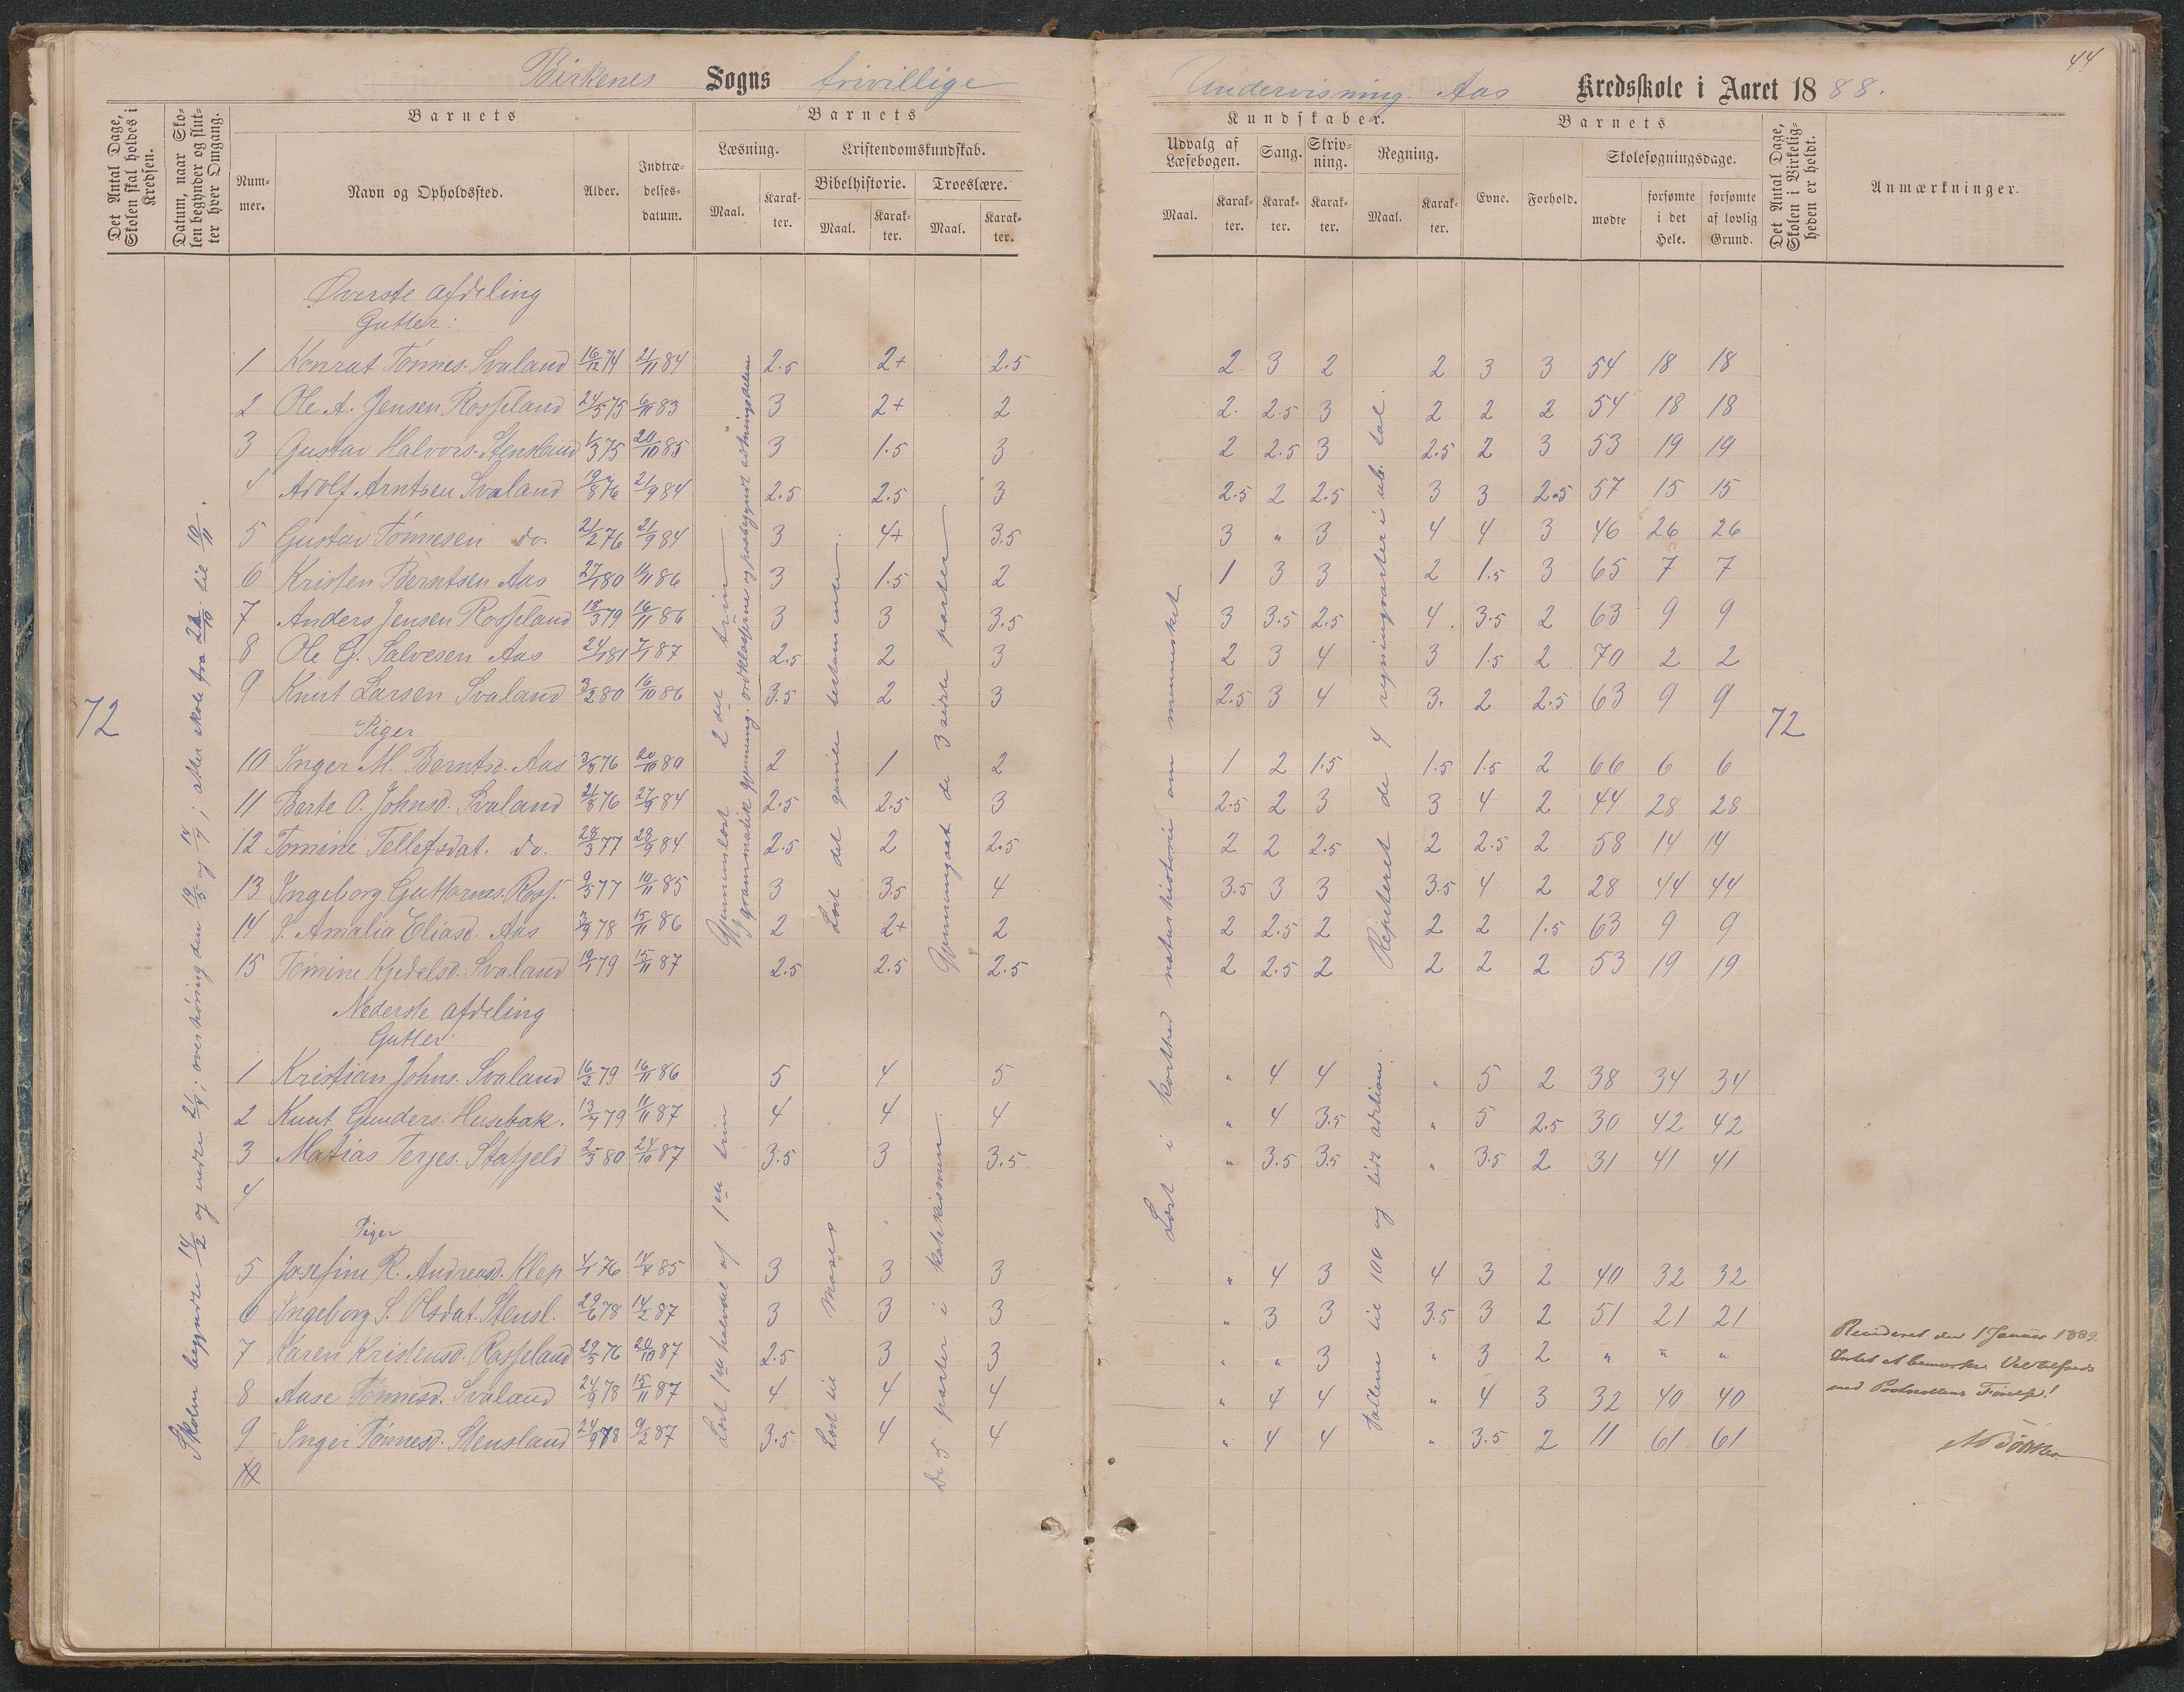 44
Birkenes Sogns frivillige Undervisning Aas Kredsskole i Aaret 1888.
Det Antal Dage, Skolen skal holdes i Kredsen.
Datum, naar Skolen begynder og slutter hver Omgang.
Barnets
Nummer.
Navn og Opholdssted.
Alder.
Indtrædelsesdatum.
Barnets
Læsning.
Maal.
Karakter.
Kristendomskundskab.
Bibelhistorie.
Maal.
Karakter.
Troeslære.
Maal.
Karakter.
Kundskaber.
Udvalg af Læsebogen.
Maal.
Karakter.
Sang.
Karakter.
Skrivning.
Karakter.
Regning.
Maal.
Karakter.
Barnets
Evne.
Forhold.
Skolesøgningsdage.
mødte
forsømte i det Hele.
forsømte af lovlig Grund.
Det Antal Dage, Skolen i Virkeligheden er holdt.
Anmærkninger.
Øverste afdeling
Gutter:
1 Konrat Tønnes. Svaland 16/12 74 21/11 84 2.5 2+ 2.5 2 3 2 2 3 3 54 18 18
2 Ole A. Jensen Rosseland 24/5 75 6/11 83 3 2+ 2 2. 2.5 3 2 2 2 54 18 18
3 Gustav Halvors. Stensland 1/3 75 20/10 85 3 1.5 3 2 2.5 3 2.5 2 3 53 19 19
4 Adolf Arntsen Svaland 19/8 76 21/9 84 2.5 2.5 3 2.5 2 2.5 3 3 2.5 57 15 15
5 Gustav Tønnesen do. 21/2 76 21/9 84 3 4+ 3.5 3 " 3 4 4 3 46 26 26
6 Kristen Berntsen Aas 27/1 80 1/11 86 3 1.5 2 1 3 3 2 1.5 3 65 7 7
7 Anders Jensen Rosseland 18/3 79 16/11 86 3 3 3.5 3 3.5 2.5 4. 3.5 2 63 9 9
8 Ole G. Salvesen Aas 24/1 81 7/1 87 2.5 2 3 2 3 4 3 1.5 2 70 2 2
9 Knut Larsen Svaland 3/2 80 16/10 86 3.5 2 3 2.5 3 4 3. 2 2.5 63 9 9
72
Piger
72
10 Inger M. Berntsd. Aas 3/3 76 20/10 89 2 1 2 1 2 1.5 1.5 1.5 2 66 6 6
11 Berte O. Johnsd. Svaland 21/8 76 27/9 84 2.5 2.5 3 2.5 2 3 3 4 2 44 28 28
12 Tomine Tellefsdat. do. 28/3 77 28/9 84 2.5 2 2.5 2 2 2.5 2 2.5 2 58 14 14
13 Ingeborg Guttormsd. Ross. 9/5 77 19/11 85 3 3.5 4 3.5 3 3 3.5 4 2 28 44 44
14 S. Amalia Eliasd. Aas 7/9 78 15/11 86 2 2+ 2 2 2.5 2 2 2 1.5 63 9 9
15 Tomine Kjedelsd. Svaland 19/1 79 15/11 87 2.5 2.5 2.5 2 2.5 2 2 2 2 53 19 19
Nederste afdeling
Gutter
1 Kristian Johns. Svaland 16/2 79 16/11 86 5 4 5 " 4 4 " 5 2 38 34 34
2 Knut Gunders. Husebak. 13/7 79 11/11 87 4 4 4 " 4 3.5 " 5 2.5 30 42 42
3 Matias Terjes. Stafjeld 2/3 80 24/10 87 3.5 3 3.5 " 3.5 3.5 " 3.5 2 31 41 41
4
Piger
5 Josefine R. Andreasd. Klep 4/1 76 14/4 85 3 3 3 " 4 3 4 3 2 40 32 32
6 Ingeborg S. Olsdat. Stensl. 29/6 78 14/2 87 3 3 3 " 3 3 3.5 3 2 51 21 21
7 Karen Kristensd. Rosseland 29/5 76 20/10 87 2.5 3 3 " " 3 " 3 2 " " "
8 Aase Tønnesd. Svaland 24/9 78 15/11 87 4 4 4 " 4 4 " 4 3 32 40 40
9 Inger Tønnesd. Stensland 24/9 78 9/2 87 3.5 4 4 " 4 4 " 3.5 2 11 61 61
10
Skolen begyndte 14/2 og endte 21/4; overhøring den 19/5 og 14/7; atter skole fra 22/10 til 10/11.
Gjennemlæst 2det trin
og grammatik gjennemg. ordklasserne og paabegyndt sætningsdelene
Læst det gamle testamente.
Gjennemgaaet de 3 sidste parter
Læst i korthed naturhistorie om mennesket
Repeteret de 4 regningsarter i ub. tal.
Læst 1ste halvdel af 1ste trin
Læst til Moses
De 5 parter i katekismen.
Tallene til 100 og lidt adition.
Revideret den 1 Januar 1889.
Intet at bemærke. Vel tilfreds
med Protocollens Førelse!